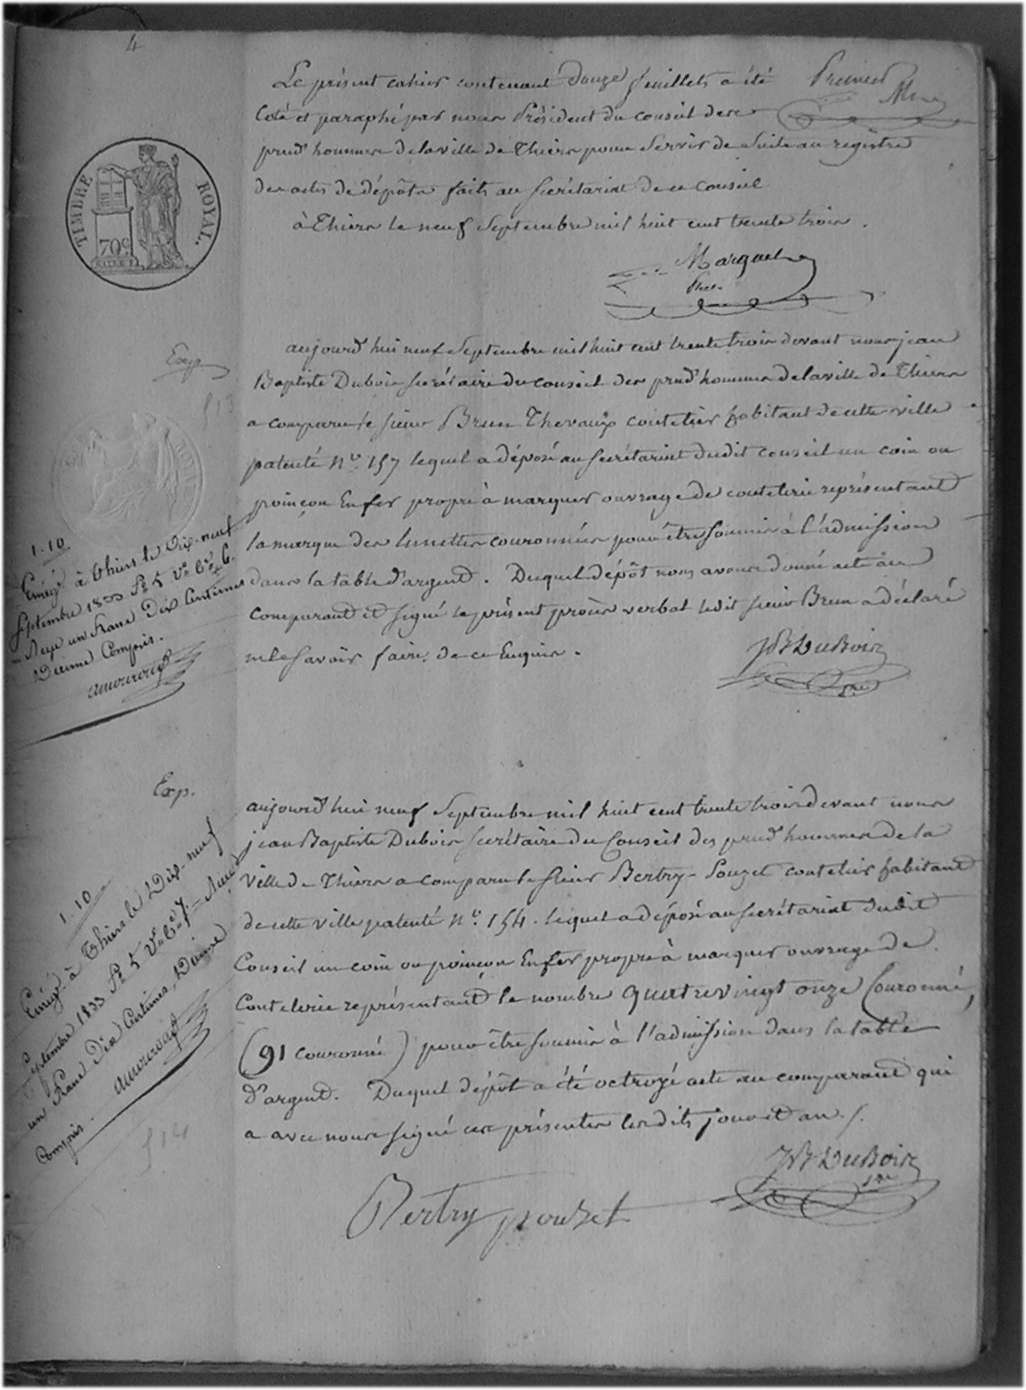 4
Le présent cahier contenant douze feuillets a été
Premier
Coté et paraphé par nous Président du conseil des
prud'hommes de la ville de Thiers pour servir de suite au registre
des actes de dépôts faits au secrétariat de ce conseil
à Thiers le neuf septembre mil huit cent trente trois.
TIMBRE ROYAL.
70c
aujourd'hui neuf septembre mil huit cent trente trois devant nous jean
Baptiste Dubois secrétaire du conseil des prud'hommes de la ville de Thiers
a comparu le sieur Brun Thevaux coutelier habitant de cette ville
patenté No. 157 lequel a déposé au secrétariat dudit conseil un coin ou
poinçon En fer propre à marquer ouvrage de coutelerie représentant
la marque des lunettes couronnées pour être soumis à l'admission
dans la table d'argent. Duquel dépôt nous avons donné acte au
comparant et signé le présent procès verbal ledit sieur Brun a déclaré
ne le savoir faire, de ce Enquis.
JB DuBois
Sre
1.10
Enregt. à Thiers le Dix-neuf
Septembre 1833 f° 5 V° Cse 6.
Reçu un franc Dix Centimes
Décime Compris.
f 13
Exp.
aujourd'hui neuf septembre mil huit cent trente trois devant nous
jean Baptiste Dubois secrétaire du Conseil des prud'hommes de la
Ville de Thiers a comparu le sieur Bertry-Pouzet coutelier habitant
de cette ville patenté No. 154. lequel a déposé au secrétariat dudit
Conseil un coin ou poinçon En fer propre à marquer ouvrage de
Coutelerie représentant le nombre quatre vingt onze Couronné,
(91 couronné) pour être soumis à l'admission dans la table
d'argent. Duquel dépôt a été octroyé acte au comparant qui
a avec nous signé ces présentes lesdits jour et an /.
JB DuBois
Sre
Bertry pouzet
1.10
Enregt. à Thiers le Dix-neuf
Septembre 1833 f° 5 V° Cse 7 Reçu
un franc Dix Centimes, Décime
Compris.
f 14